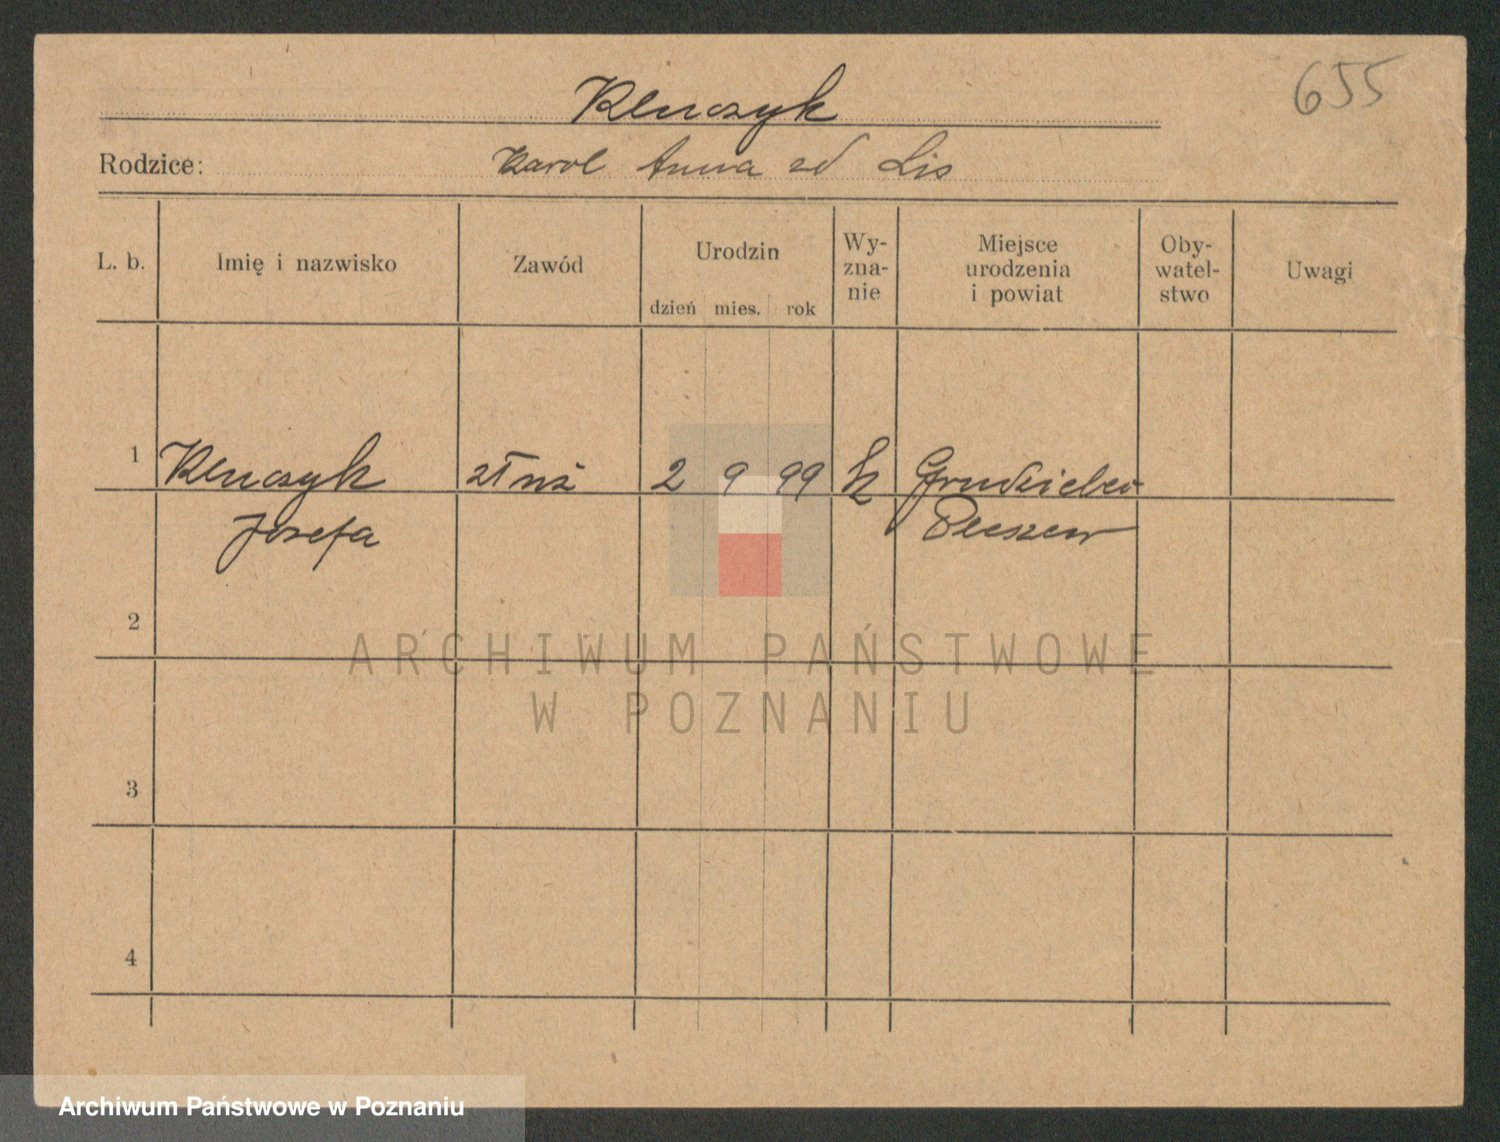 655
Kluczyk
Rodzice: Karol Anna zd Lis
L. b. Imię i nazwisko Zawód Urodzin dzień mies. rok Wy-zna-nie Miejsce urodzenia i powiat Oby-watel-stwo Uwagi
1 Kluczyk 2 9 99 k Grudzielec
Josefa Pleszew
2
ARCHIWUM PAŃSTWOWE
W POZNANIU
3
4
Archiwum Państwowe w Poznaniu